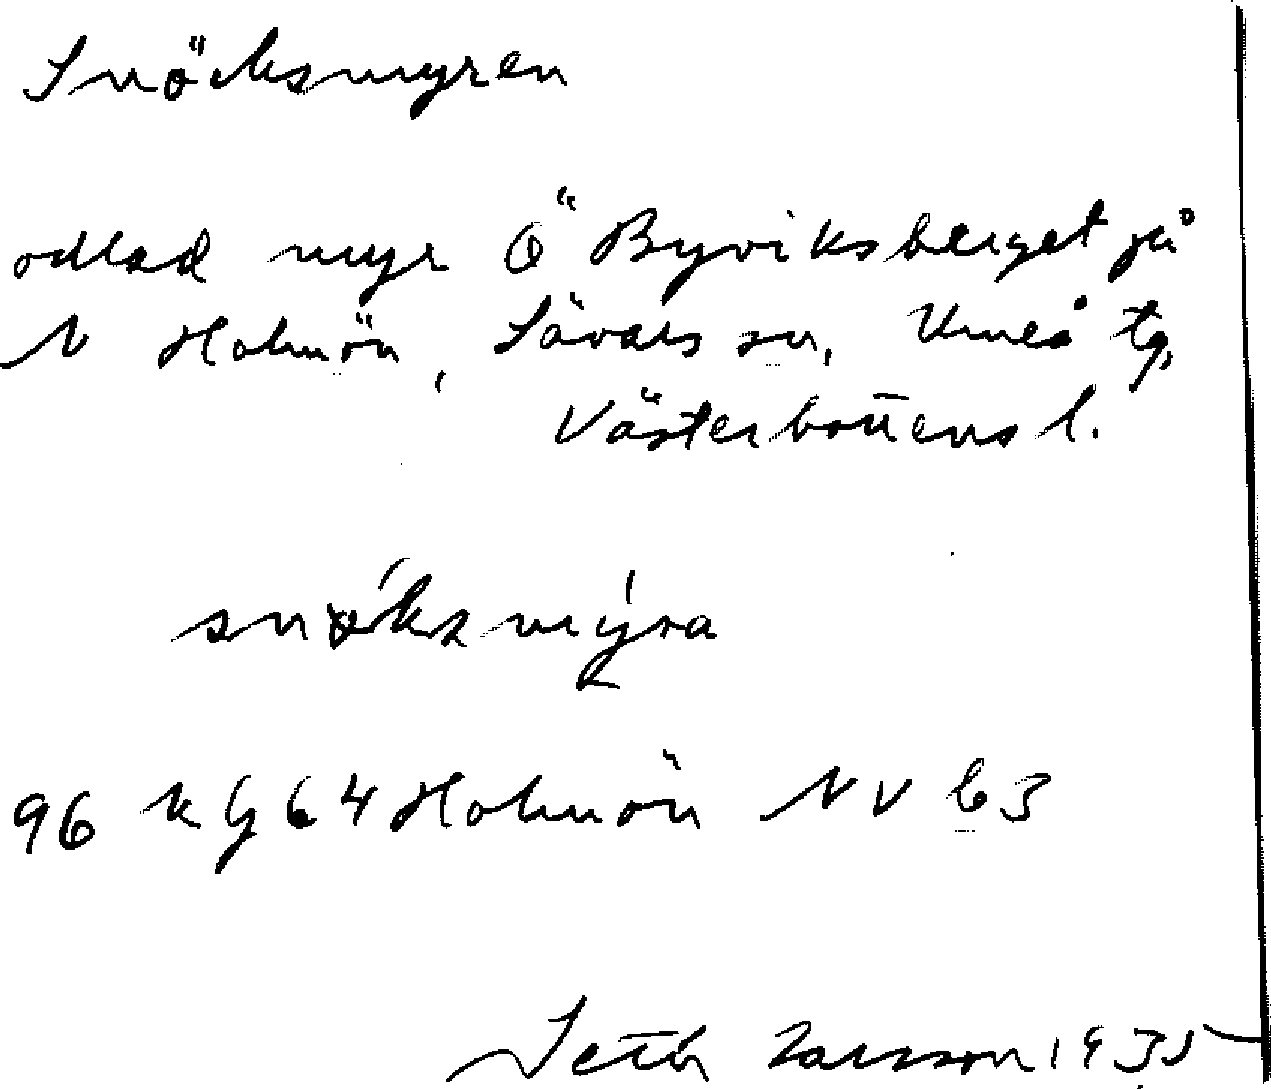 Snöcksmyren
odlad myr Ö Byviksberget på
N Holmön, Sävars sn, Umeå tg,
Västerbottens l.
snøksmyra
96 Kg 64 Holmön NV b3
Seth Larsson 1935